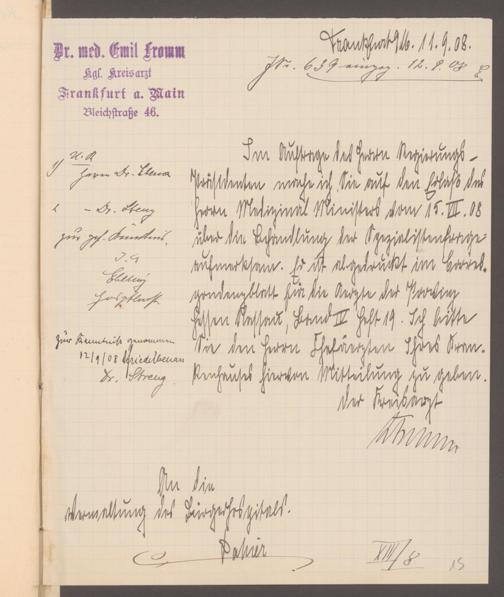 Dr. med. Emil Fromm
Kgl. Kreisarzt
Frankfurt a. Main
Bleichstraße 46.
Frankfurt a/M. 11.9.08.
639 eingeg. 12.9.08
Im Auftrage des Herrn Regierungs-
Präsidenten mache ich Sie auf den Erlaß des
Herrn Medizinal Ministers vom 15.VII.08
über die Behandlung der Spezialistenfrage
aufmerksam. Er ist abgedruckt im Corres-
pondenzblatt für die Aerzte der Provinz
Hessen Nassau, Band IV Heft 19. Ich bitte
Sie den Herrn Chefärzten Ihres Kran-
kenhauses hiervon Mitteilung zu geben.
Der Kreisarzt
Fromm
1)
Herrn Dr.
2 - Dr. Streng
zur gef. Kenntnis.
zur Kenntniß genommen
12/9/08
Dr. Streng
An die
Verwaltung des Bürgerhospitals.
hier
XIII/8
15